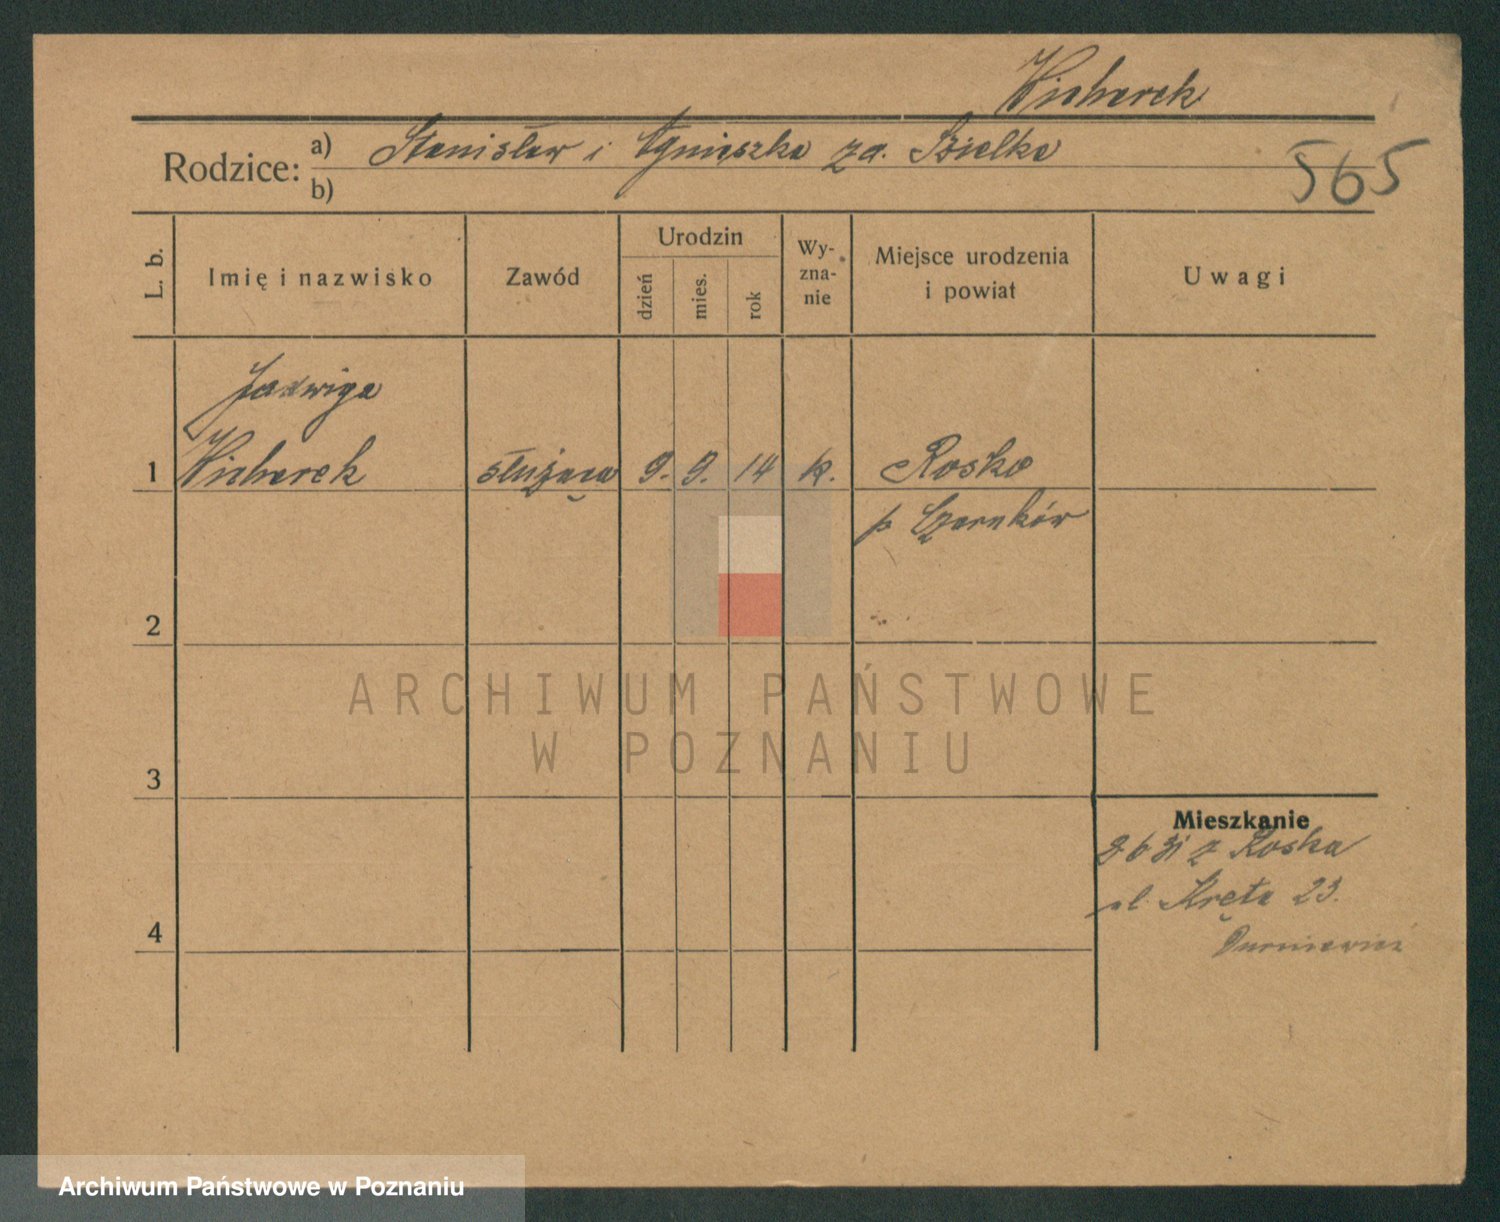 Wicherek
Rodzice: a) Stanisław i Agnieszka zd. Szielke
b)
565
L. b.
Imię i nazwisko
Zawód
Urodzin
dzień
mies.
rok
Wy-
zna-
nie
Miejsce urodzenia
i powiat
Uwagi
Jadwiga
1 Wicherek służąca 9. 9. 14 k. Rosko
p Czarnków
2
3
4
Mieszkanie
z Roska
ul. Kręta 23.
ARCHIWUM PAŃSTWOWE
W POZNANIU
Archiwum Państwowe w Poznaniu